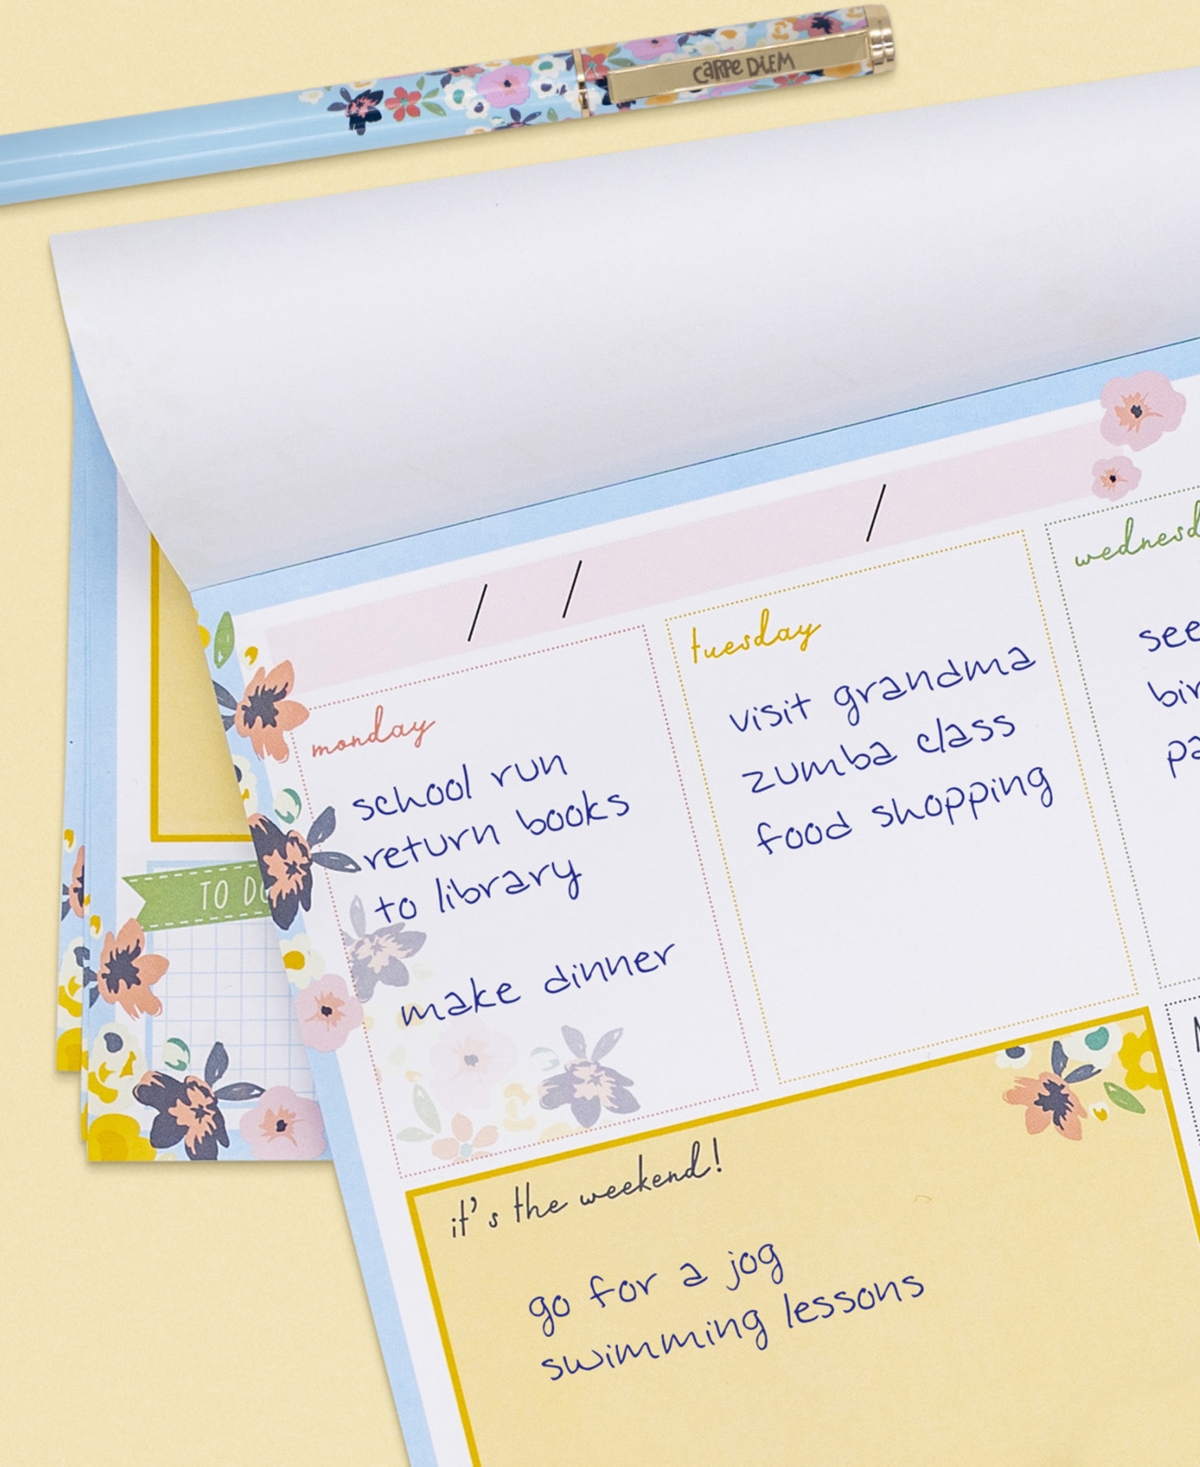 CARPE DIEM
/ / /
monday
school run
return books
to library
make dinner
tuesday
visit grandma
zumba class
food shopping
see
TO DO
it's the weekend!
go for a jog
swimming lessons